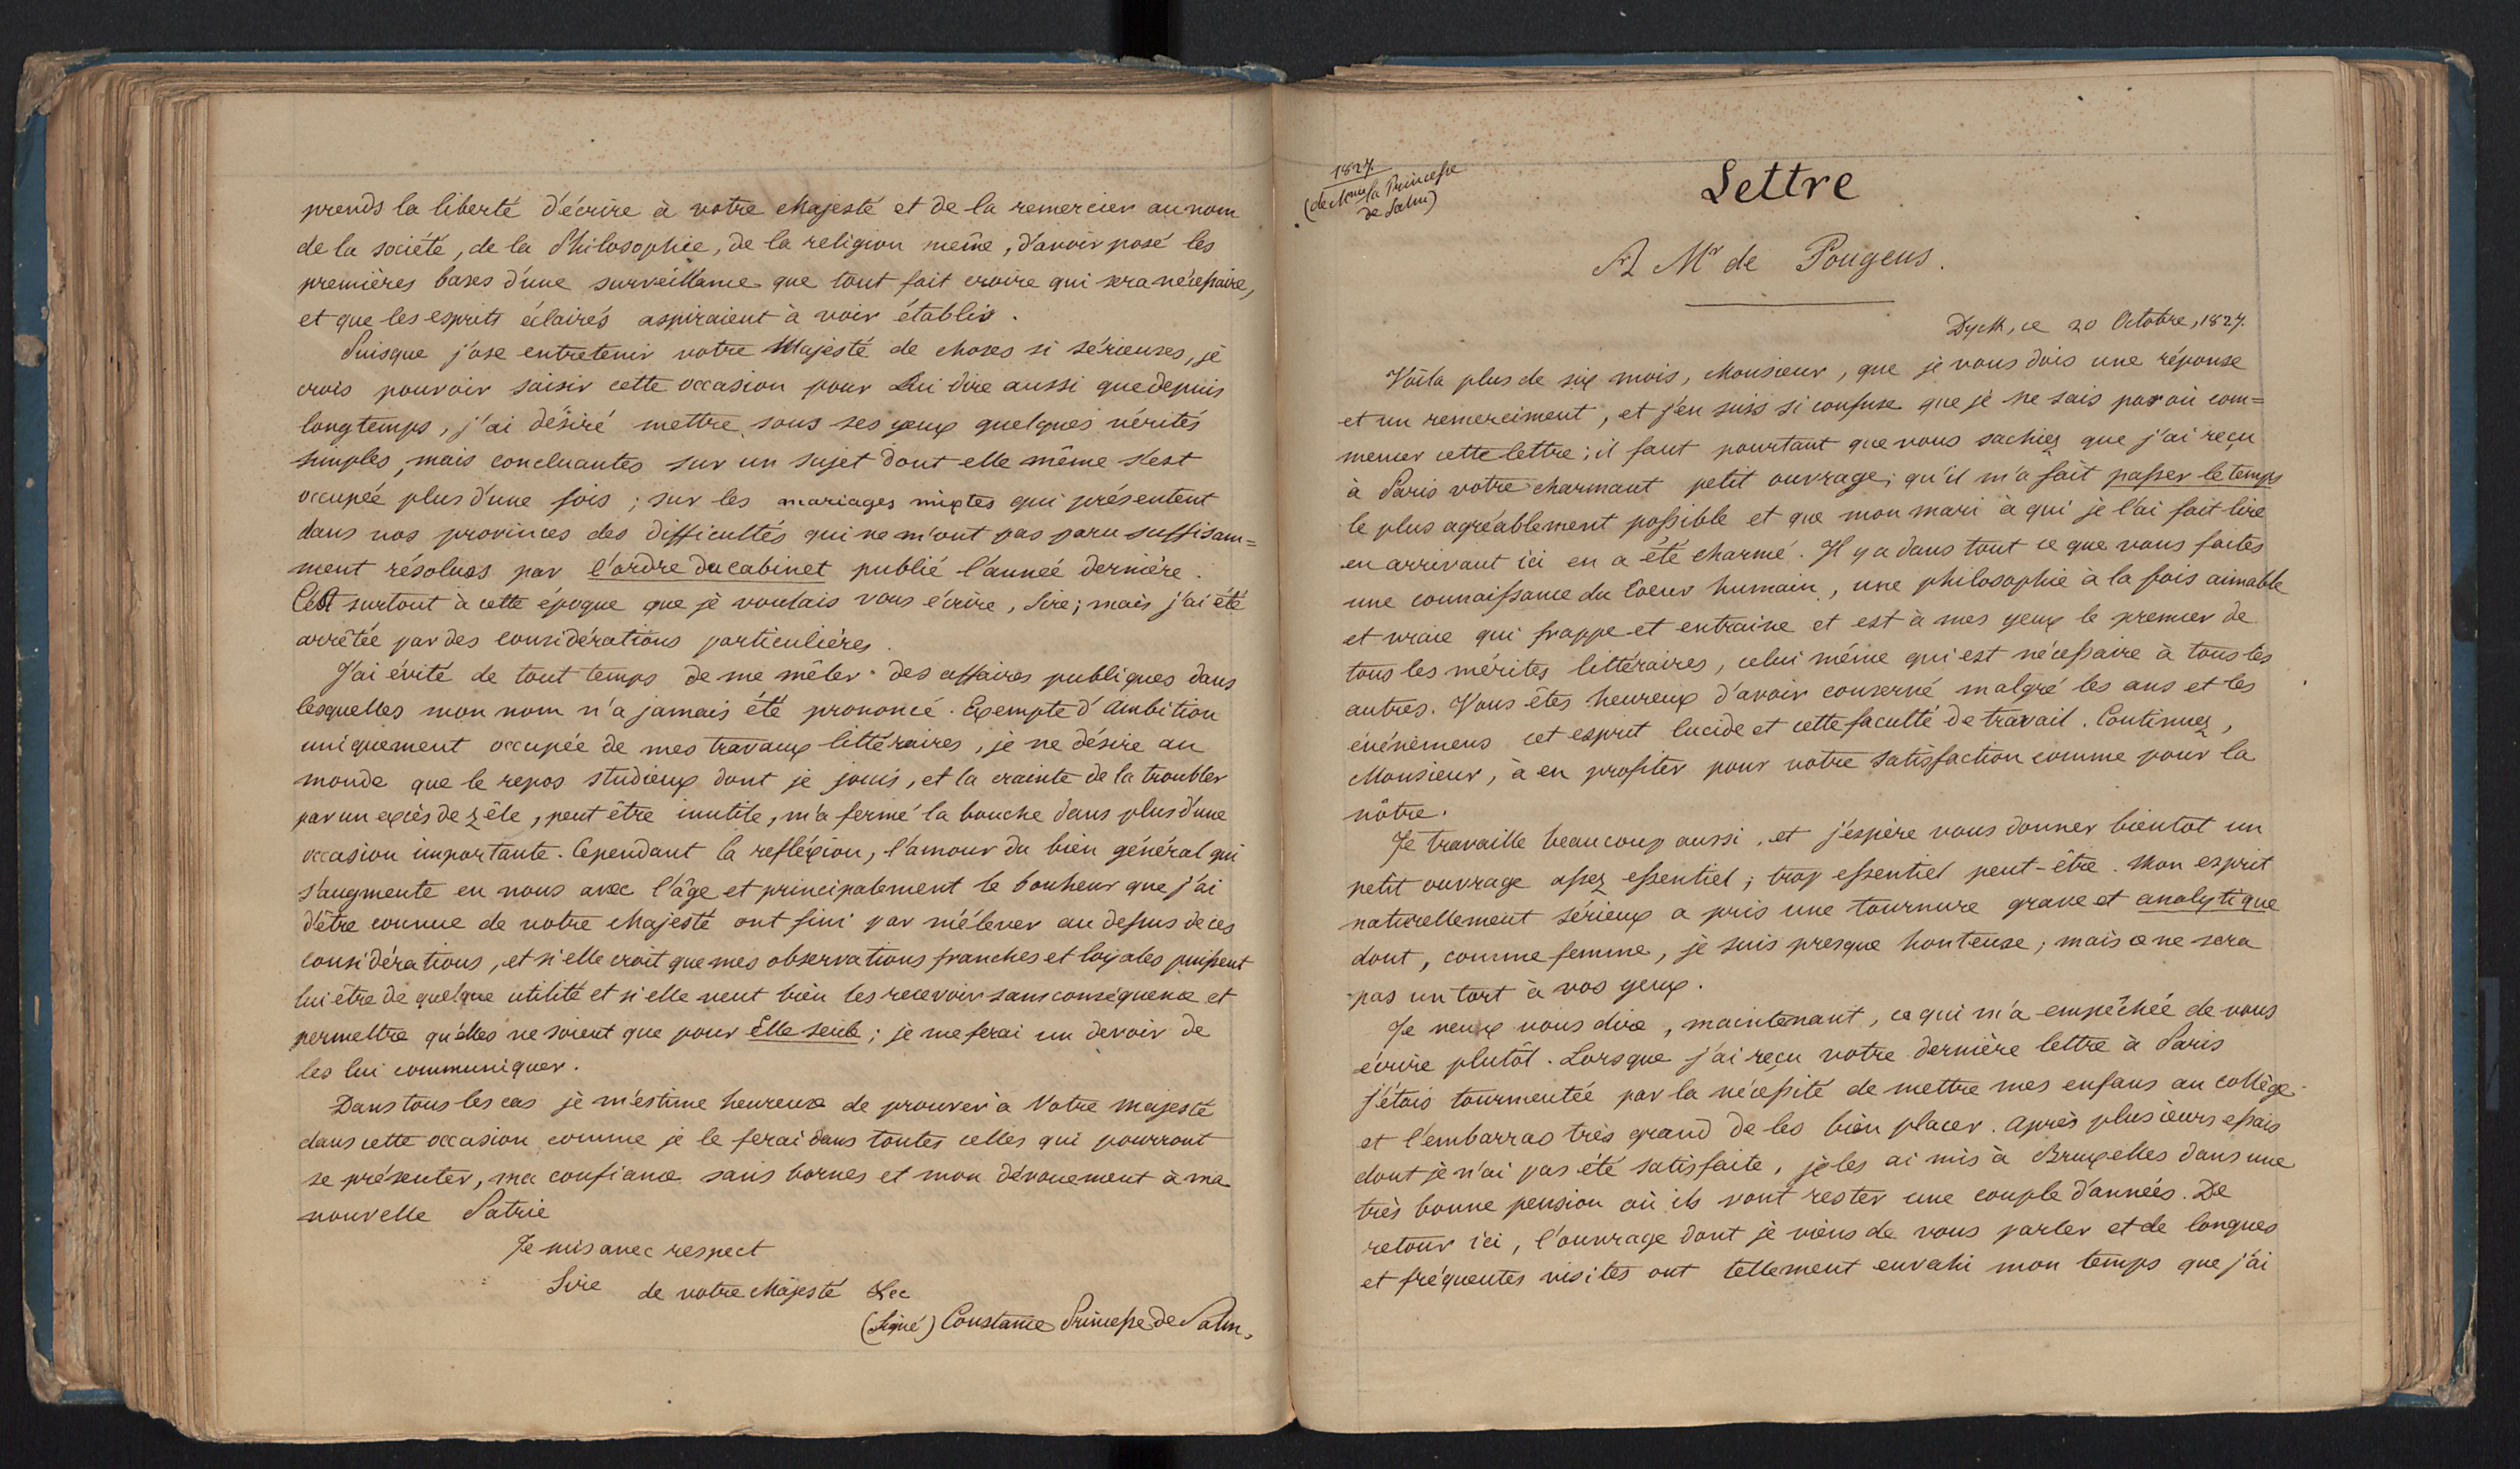 prends la liberté d'écrire à votre Majesté et de la remercier au nom
de la société, de la Philosophie, de la religion même, d'avoir posé les
premières bases d'une surveillance que tout fait croire qui sera nécessaire,
et que les esprits éclairés aspiraient à voir établir.
Puisque j'ose entretenir votre Majesté de choses si sérieuses, je
crois pouvoir saisir cette occasion pour Lui dire aussi que depuis
longtemps, j'ai désiré mettre sous ses yeux quelques vérités
simples, mais concluantes sur un sujet dont elle même s'est
occupée plus d'une fois ; sur les mariages mixtes qui présentent
dans nos provinces des difficultés qui ne m'ont pas paru suffisam=
ment résolues par l'ordre du cabinet publié l'année dernière.
C'est surtout à cette époque que je voulais vous écrire, Sire ; mais j'ai été
arrêtée par des considérations particulières.
J'ai évité de tout temps de me mêler des affaires publiques dans
lesquelles mon nom n'a jamais été prononcé. Exempte d'ambition
uniquement occupée de mes travaux littéraires, je ne désire au
monde que le repos studieux dont je jouis, et la crainte de la troubler
par un excès de zêle, peut être inutile, m'a fermé la bouche dans plus d'une
occasion importante. Cependant la refléxion, l'amour du bien général qui
s'augmente en nous avec l'âge et principalement le bonheur que j'ai
d'être connue de votre Majesté ont fini par m'élever au dessus de ces
considérations, et si elle croit que mes observations franches et loyales puissent
lui être de quelque utilité et si elle veut bien les recevoir sans conséquence et
permettre qu'elles ne soient que pour Elle seule ; je me ferai un devoir de
les lui communiquer.
Dans tous les cas je m'estime heureuse de prouver à Votre majesté
dans cette occasion comme je le ferai dans toutes celles qui pourront
se présenter, ma confiance sans bornes et mon dévouement à ma
nouvelle Patrie
Je suis avec respect
Sire de votre Majesté &ec
(Signé) Constance Princesse de Salm.
1827
(de Mme la Princesse
de Salm)
Lettre
A Mr de Pougens.
Dyck, ce 20 Octobre, 1827.
Voila plus de six mois, Monsieur, que je vous dois une réponse
et un remerciment, et j'en suis si confuse que je ne sais par où com=
mencer cette lettre ; il faut pourtant que vous sachiez que j'ai reçu
à Paris votre charmant petit ouvrage ; qu'il m'a fait passer le temps
le plus agréablement possible et que mon mari à qui je l'ai fait lire
en arrivant ici en a été charmé. Il y a dans tout ce que vous faites
une connaissance du Coeur humain, une philosophie à la fois aimable
et vraie qui frappe et entraine et est à mes yeux le premier de
tous les mérites littéraires, celui même qui est nécessaire à tous les
autres. Vous êtes heureux d'avoir conservé malgré les ans et les
événemens cet esprit lucide et cette faculté de travail. Continuez,
Monsieur, à en profiter pour votre satisfaction comme pour la
nôtre.
Je travaille beaucoup aussi, et j'espère vous donner bientot un
petit ouvrage assez essentiel ; trop essentiel peut-être. Mon esprit
naturellement sérieux a pris une tournure grave et analytique
dont, comme femme, je suis presque honteuse ; mais ce ne sera
pas un tort à vos yeux.
Je veux vous dire, maintenant, ce qui m'a empêchée de vous
écrire plutôt. Lorsque j'ai reçu votre dernière lettre à Paris
j'étois tourmentée par la nécessité de mettre mes enfans au collège
et l'embarras très grand de les bien placer. Après plusieurs essais
dont je n'ai pas été satisfaite, je les ai mis à Bruxelles dans une
très bonne pension où ils vont rester une couple d'années. De
retour ici, l'ouvrage dont je viens de vous parler et de longues
et fréquentes visites ont tellement envahi mon temps que j'ai